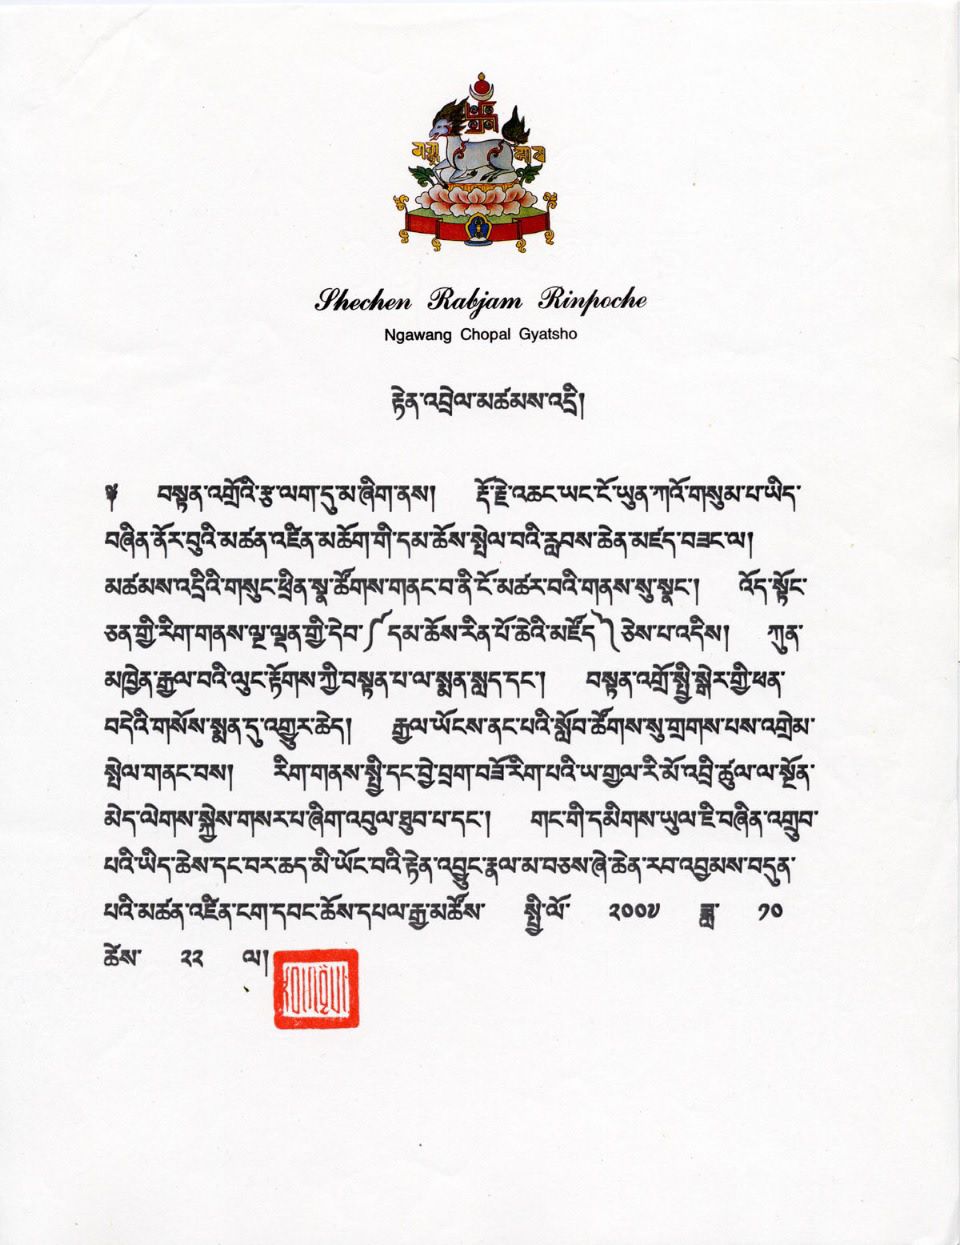 Shechen Rabjam Rinpoche
Ngawang Chopal Gyatsho
རྟེན་འབྲེལ་མཚམས་འདྲི།
༧ བསྟན་འགྲོའི་རྩ་ལག་དུ་མ་ཞིག་ནས། རྡོ་རྗེ་འཆང་ཡང་ངོ་ཡུན་ཀའོ་གསུམ་པ་ཡིད་
བཞིན་ནོར་བུའི་མཚན་འཛིན་མཆོག་གི་དམ་ཆོས་སྤེལ་བའི་རླབས་ཆེན་མཛད་བཟང་ལ།
མཚམས་འདྲིའི་གསུང་ཕྲིན་སྣ་ཚོགས་གནང་བ་ནི་ངོ་མཚར་བའི་གནས་སུ་སྣང་། འོད་སྟོང་
ཅན་གྱི་རིག་གནས་ལྔ་ལྡན་གྱི་དེབ་༼དམ་ཆོས་རིན་པོ་ཆེའི་མཛོད་༽ཅེས་པ་འདིས། ཀུན་
མཁྱེན་རྒྱལ་བའི་ལུང་རྟོགས་ཀྱི་བསྟན་པ་ལ་སྨན་སླད་དང་། བསྟན་འགྲོ་སྤྱི་སྒེར་གྱི་ཕན་
བདེའི་གསོས་སྨན་དུ་འགྱུར་ཆེད། རྒྱལ་ཡོངས་ནང་པའི་སློབ་ཚོགས་སུ་གྲགས་པས་འགྲེམ་
སྤེལ་གནང་བས། རིག་གནས་སྤྱི་དང་བྱེ་བྲག་བཟོ་རིག་པའི་ཡ་གྱལ་རི་མོ་འབྲི་ཚུལ་ལ་སྔོན་
མེད་ལེགས་སྐྱེས་གསར་པ་ཞིག་འབུལ་ཐུབ་པ་དང་། གང་གི་དམིགས་ཡུལ་ཇི་བཞིན་འགྲུབ་
པའི་ཡིད་ཆེས་དང་བར་ཆད་མི་ཡོང་བའི་རྟེན་འབྱུང་རྣལ་མ་བཅས་ཞེ་ཆེན་རབ་འབྱམས་བདུན་
པའི་མཚན་འཛིན་ངག་དབང་ཆོས་དཔལ་རྒྱ་མཚོས་ སྤྱི་ལོ་ ༢༠༠༧ ཟླ་ ༡༠
ཚེས་ ༢༢ ལ།